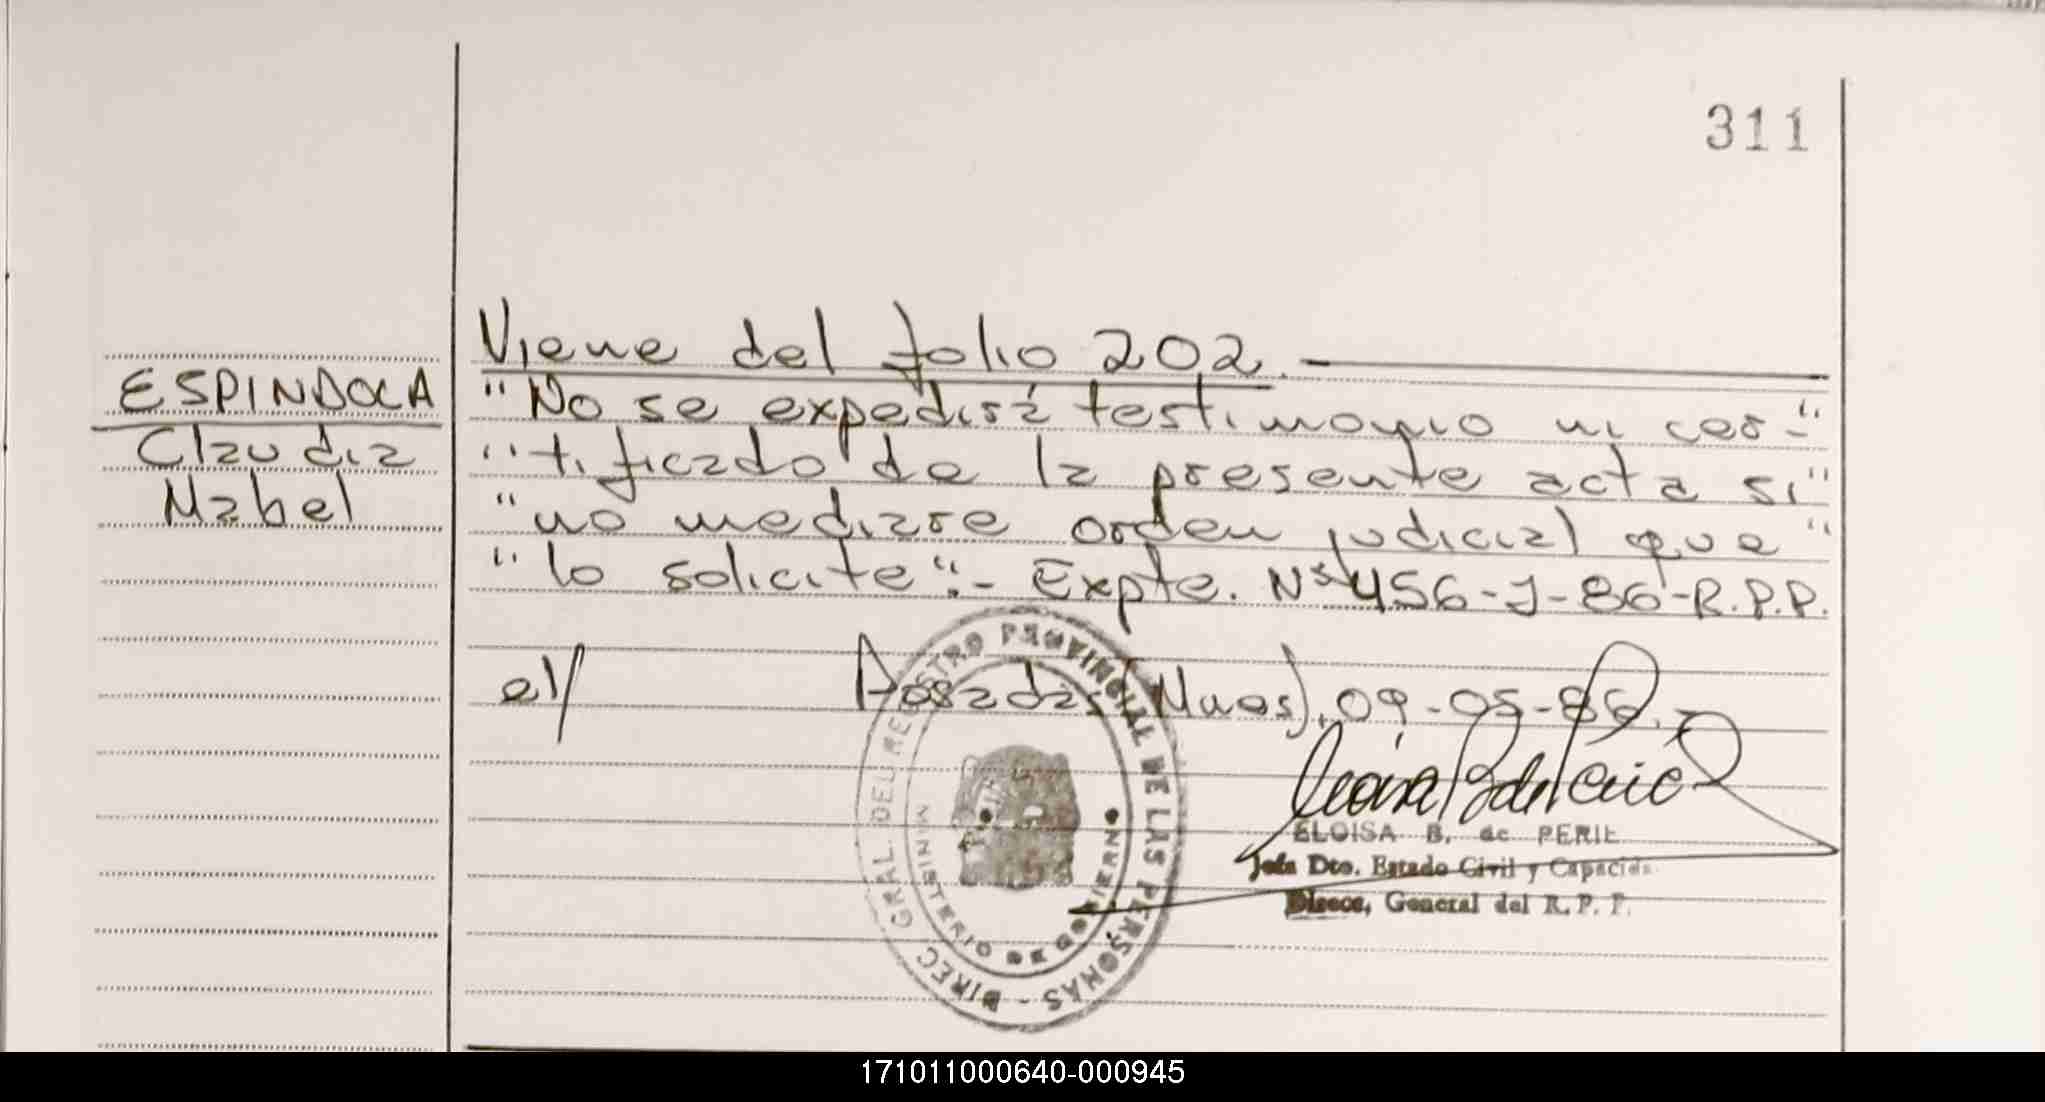 311
Viene del folio 202.-
ESPINDOLA
Claudia
Mabel
"No se expedirá testimonio ni cer-"
"tificado de la presente acta si"
"no mediare orden judicial que"
"lo solicite".- Expte. Nº 456-J-86-R.P.P.
el/ Posadas (Mnes), 09-05-86.-
DIREC. GRAL. DEL REGISTRO PROVINCIAL DE LAS PERSONAS -
MINISTERIO DE GOBIERNO
ELOISA B. de PERIE
Jefa Dto. Estado Civil y Capacida
Direcc. General del R. P. P.
171011000640-000945